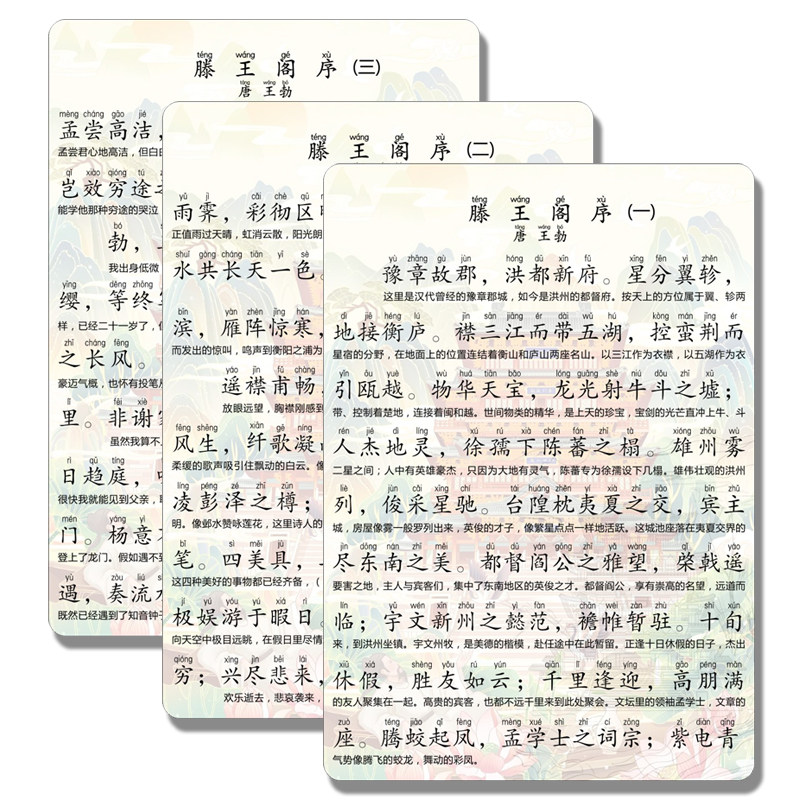 téng wáng gé xù
滕王阁序(三)
táng wáng bó
唐 王勃
mèng cháng gāo jié
孟尝高洁，
孟尝君心地高洁，但白白
qǐ xiào qióng tú
岂效穷途
能学他那种穷途的哭泣
bó
勃，
我出身低微
yīng děng zhōng
缨，等终
样，已经二十一岁了，
zhī cháng fēng
之长风。
豪迈气概，也怀有投笔从
lǐ fēi xiè
里。非谢
虽然我算不
rì qū tíng
日趋庭，
很快我就能见到父亲，
mén yáng yì
门。杨意
登上了龙门。假如遇不到
yù zòu liú shuǐ
遇，奏流水
既然已经遇到了知音钟子
téng wáng gé xù
滕王阁序(二)
yǔ jì cǎi chè qū
雨霁，彩彻区
正值雨过天晴，虹消云散，阳光朗
shuǐ gòng cháng tiān yī sè
水共长天一色。
bīn yàn zhèn jīng hán
滨，雁阵惊寒，
而发出的惊叫，鸣声到衡阳之浦为
yáo jīn fǔ chàng
遥襟甫畅
放眼远望，胸襟刚感到
fēng shēng xiān gē níng
风生，纤歌凝
柔缓的歌声吸引住飘动的白云。像
líng péng zé zhī zūn
凌彭泽之樽；
明。像邺水赞咏莲花，这里诗人的
bǐ sì měi jù
笔。四美具，
这四种美好的事物都已经齐备，（
jí yú yóu yú xiá rì
极娱游于暇日。
向天空中极目远眺，在假日里尽情
qióng xìng jìn bēi lái
穷；兴尽悲来，
欢乐逝去，悲哀袭来，
téng wáng gé xù
滕王阁序(一)
táng wáng bó
唐 王勃
yù zhāng gù jùn hóng dū xīn fǔ xīng fēn yì zhěn
豫章故郡，洪都新府。星分翼轸，
这里是汉代曾经的豫章郡城，如今是洪州的都督府。按天上的方位属于翼、轸两
dì jiē héng lú jīn sān jiāng ér dài wǔ hú kòng mán jīng ér
地接衡庐。襟三江而带五湖，控蛮荆而
星宿的分野，在地面上的位置连结着衡山和庐山两座名山。以三江作为衣襟，以五湖作为衣
yǐn ōu yuè wù huá tiān bǎo lóng guāng shè niú dǒu zhī xū
引瓯越。物华天宝，龙光射牛斗之墟；
带、控制着楚地，连接着闽和越。世间物类的精华，是上天的珍宝，宝剑的光芒直冲上牛、斗
rén jié dì líng xú rú xià chén fān zhī tà xióng zhōu wù
人杰地灵，徐孺下陈蕃之榻。雄州雾
二星之间；人中有英雄豪杰，只因为大地有灵气，陈蕃专为徐孺设下几榻。雄伟壮观的洪州
liè jùn cǎi xīng chí tái huáng zhěn yí xià zhī jiāo bīn zhǔ
列，俊采星驰。台隍枕夷夏之交，宾主
城，房屋像雾一般罗列出来，英俊的才子，像繁星点点一样地活跃。这城池座落在夷夏交界的
jìn dōng nán zhī měi dū dū yán gōng zhī yǎ wàng qǐ jǐ yáo
尽东南之美。都督阎公之雅望，棨戟遥
要害之地，主人与宾客们，集中了东南地区的英俊之才。都督阎公，享有崇高的名望，远道而
lín yǔ wén xīn zhōu zhī yì fàn chān wéi zàn zhù shí xún
临；宇文新州之懿范，襜帷暂驻。十旬
来，到洪州坐镇。宇文州牧，是美德的楷模，赴任途中在此暂留。正逢十日休假的日子，杰出
xiū jià shèng yǒu rú yún qiān lǐ féng yíng gāo péng mǎn
休假，胜友如云；千里逢迎，高朋满
的友人聚集在一起。高贵的宾客，也都不远千里来到此处聚会。文坛里的领袖孟学士，文章的
zuò téng jiāo qǐ fēng mèng xué shì zhī cí zōng zǐ diàn qīng
座。腾蛟起凤，孟学士之词宗；紫电青
气势像腾飞的蛟龙，舞动的彩凤。